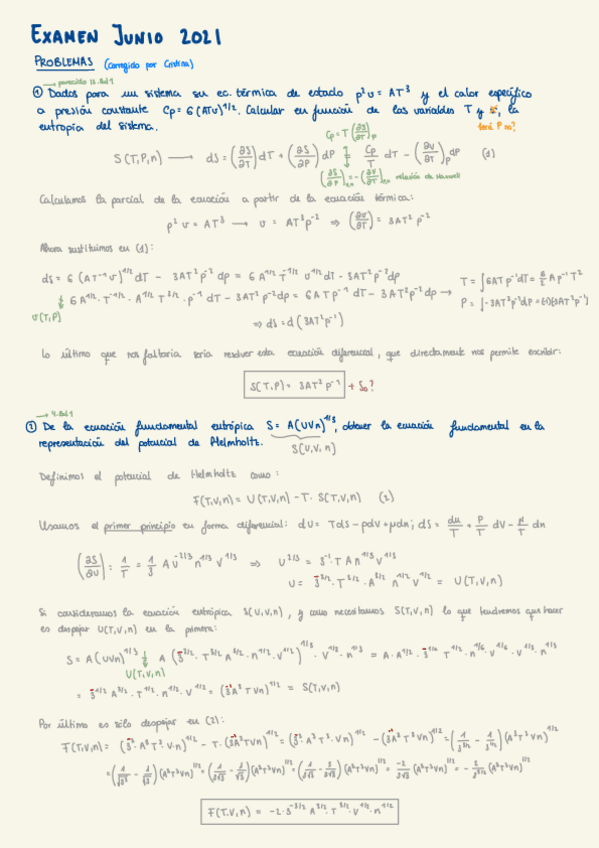 EXAMEN JUNIO 2021
PROBLEMAS (corregido por Cristina)
→ parecido
① Dados para un sistema su ec. térmica de estado p²v = AT³ y el calor específico
a presión constante Cp = 6(ATv)^1/2. Calcular en función de las variables T y v, la
entropía del sistema.
será P no?
Cp = T(∂S/∂T)_P
S(T,P,n) → dS = (∂S/∂T)dT + (∂S/∂P)dP = Cp/T dT - (∂v/∂T)_P dP (1)
(∂S/∂P) = -(∂v/∂T) relación de Maxwell
Calculamos la parcial de la ecuación a partir de la ecuación térmica:
p²v = AT³ → v = AT³p⁻² ⇒ (∂v/∂T) = 3AT²p⁻²
Ahora sustituimos en (1):
dS = 6(AT⁻¹v)^1/2 dT - 3AT²p⁻²dp = 6A^1/2 T^-1/2 v^1/2 dT - 3AT²p⁻²dp
v(T,P) 6A^1/2 · T^-1/2 · A^1/2 T^3/2 · p⁻¹ dT - 3AT²p⁻²dp = 6ATp⁻¹dT - 3AT²p⁻²dp →
T = ∫6ATp⁻¹dT = 6/2 Ap⁻¹T²
P = ∫-3AT²p⁻²dp = (-1)(3AT²p⁻¹)
⇒ dS = d(3AT²p⁻¹)
Lo último que nos faltaría sería resolver esta ecuación diferencial, que directamente nos permite escribir:
S(T,P) = 3AT²p⁻¹ + S₀?
② De la ecuación fundamental entrópica S = A(UVn)^1/3, obtener la ecuación fundamental en la
representación del potencial de Helmholtz.
S(U,V,n)
Definimos el potencial de Helmholtz como:
F(T,V,n) = U(T,V,n) - T · S(T,V,n) (2)
Usamos el primer principio en forma diferencial: dU = TdS - pdV + μdn; dS = du/T + P/T dV - μ/T dn
(∂S/∂U) = 1/T = 1/3 A U^-2/3 n^1/3 V^1/3 ⇒ U^2/3 = 3⁻¹ · T A n^1/3 V^1/3
U = 3^-3/2 · T^3/2 · A^3/2 n^1/2 V^1/2 = U(T,V,n)
Si consideramos la ecuación entrópica S(U,V,n), y como necesitamos S(T,V,n) lo que tendremos que hacer
es despejar U(T,V,n) en la primera:
S = A(UVn)^1/3 = A(3^-3/2 · T^3/2 A^3/2 · n^1/2 · V^1/2)^1/3 · V^1/3 · n^1/3 = A · A^1/2 · 3^-1/2 T^1/2 · n^1/6 · V^1/6 · V^1/3 · n^1/3
U(T,V,n)
= 3^-1/2 A^3/2 · T^1/2 · n^1/2 · V^1/2 = (3⁻¹A³TVn)^1/2 = S(T,V,n)
Por último es sólo despejar en (2):
F(T,V,n) = (3⁻³ · A³T³ · V·n)^1/2 - T · (3⁻¹A³TVn)^1/2 = (3⁻³ · A³T³ · Vn)^1/2 - (3⁻¹A³T³Vn)^1/2 = (1/3^3/2 - 1/3^1/2)(A³T³Vn)^1/2
= (1/√3³ - 1/√3)(A³T³Vn)^1/2 = (1/3√3 - 1/√3)(A³T³Vn)^1/2 = (1/3√3 - 3/3√3)(A³T³Vn)^1/2 = -2/3√3 (A³T³Vn)^1/2 = - 2/3^3/2 (A³T³Vn)^1/2
F(T,V,n) = -2·3^-3/2 A^3/2 · T^3/2 · V^1/2 · n^1/2